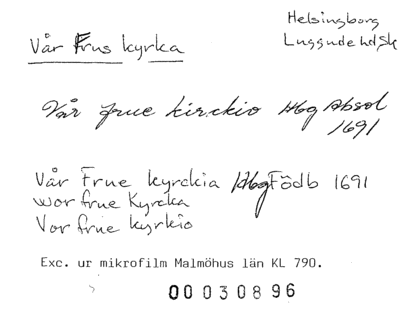 Helsingborg
Vår Frus kyrka Luggude hd, Sk
Vår frue kirckio Hbg Absol
1691
Vår Frue kyrckia Hbg Födb 1691
Wor frue Kyrcka
Vor frue kyrkio
Exc. ur mikrofilm Malmöhus län KL 790.
00030896